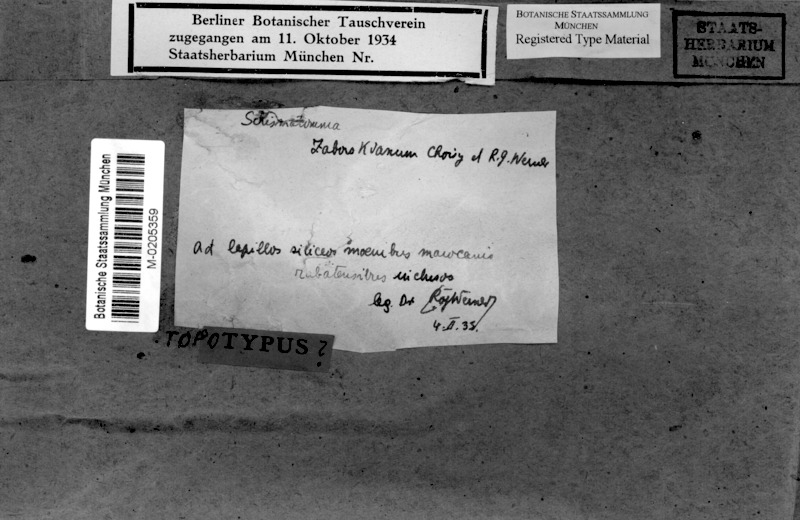 Berliner Botanischer Tauschverein
zugegangen am 11. Oktober 1934
Staatsherbarium München Nr.
BOTANISCHE STAATSSAMMLUNG
MÜNCHEN
Registered Type Material
STAATS-
HERBARIUM
MÜNCHEN
Botanische Staatssammlung München
M-0205359
Schismatomma
Choisy et R.G. Werner
ad lapillos siliceos moenibus marocanis
rabatensibus inclusos
leg. Dr RGWerner
4.II.33.
TOPOTYPUS?